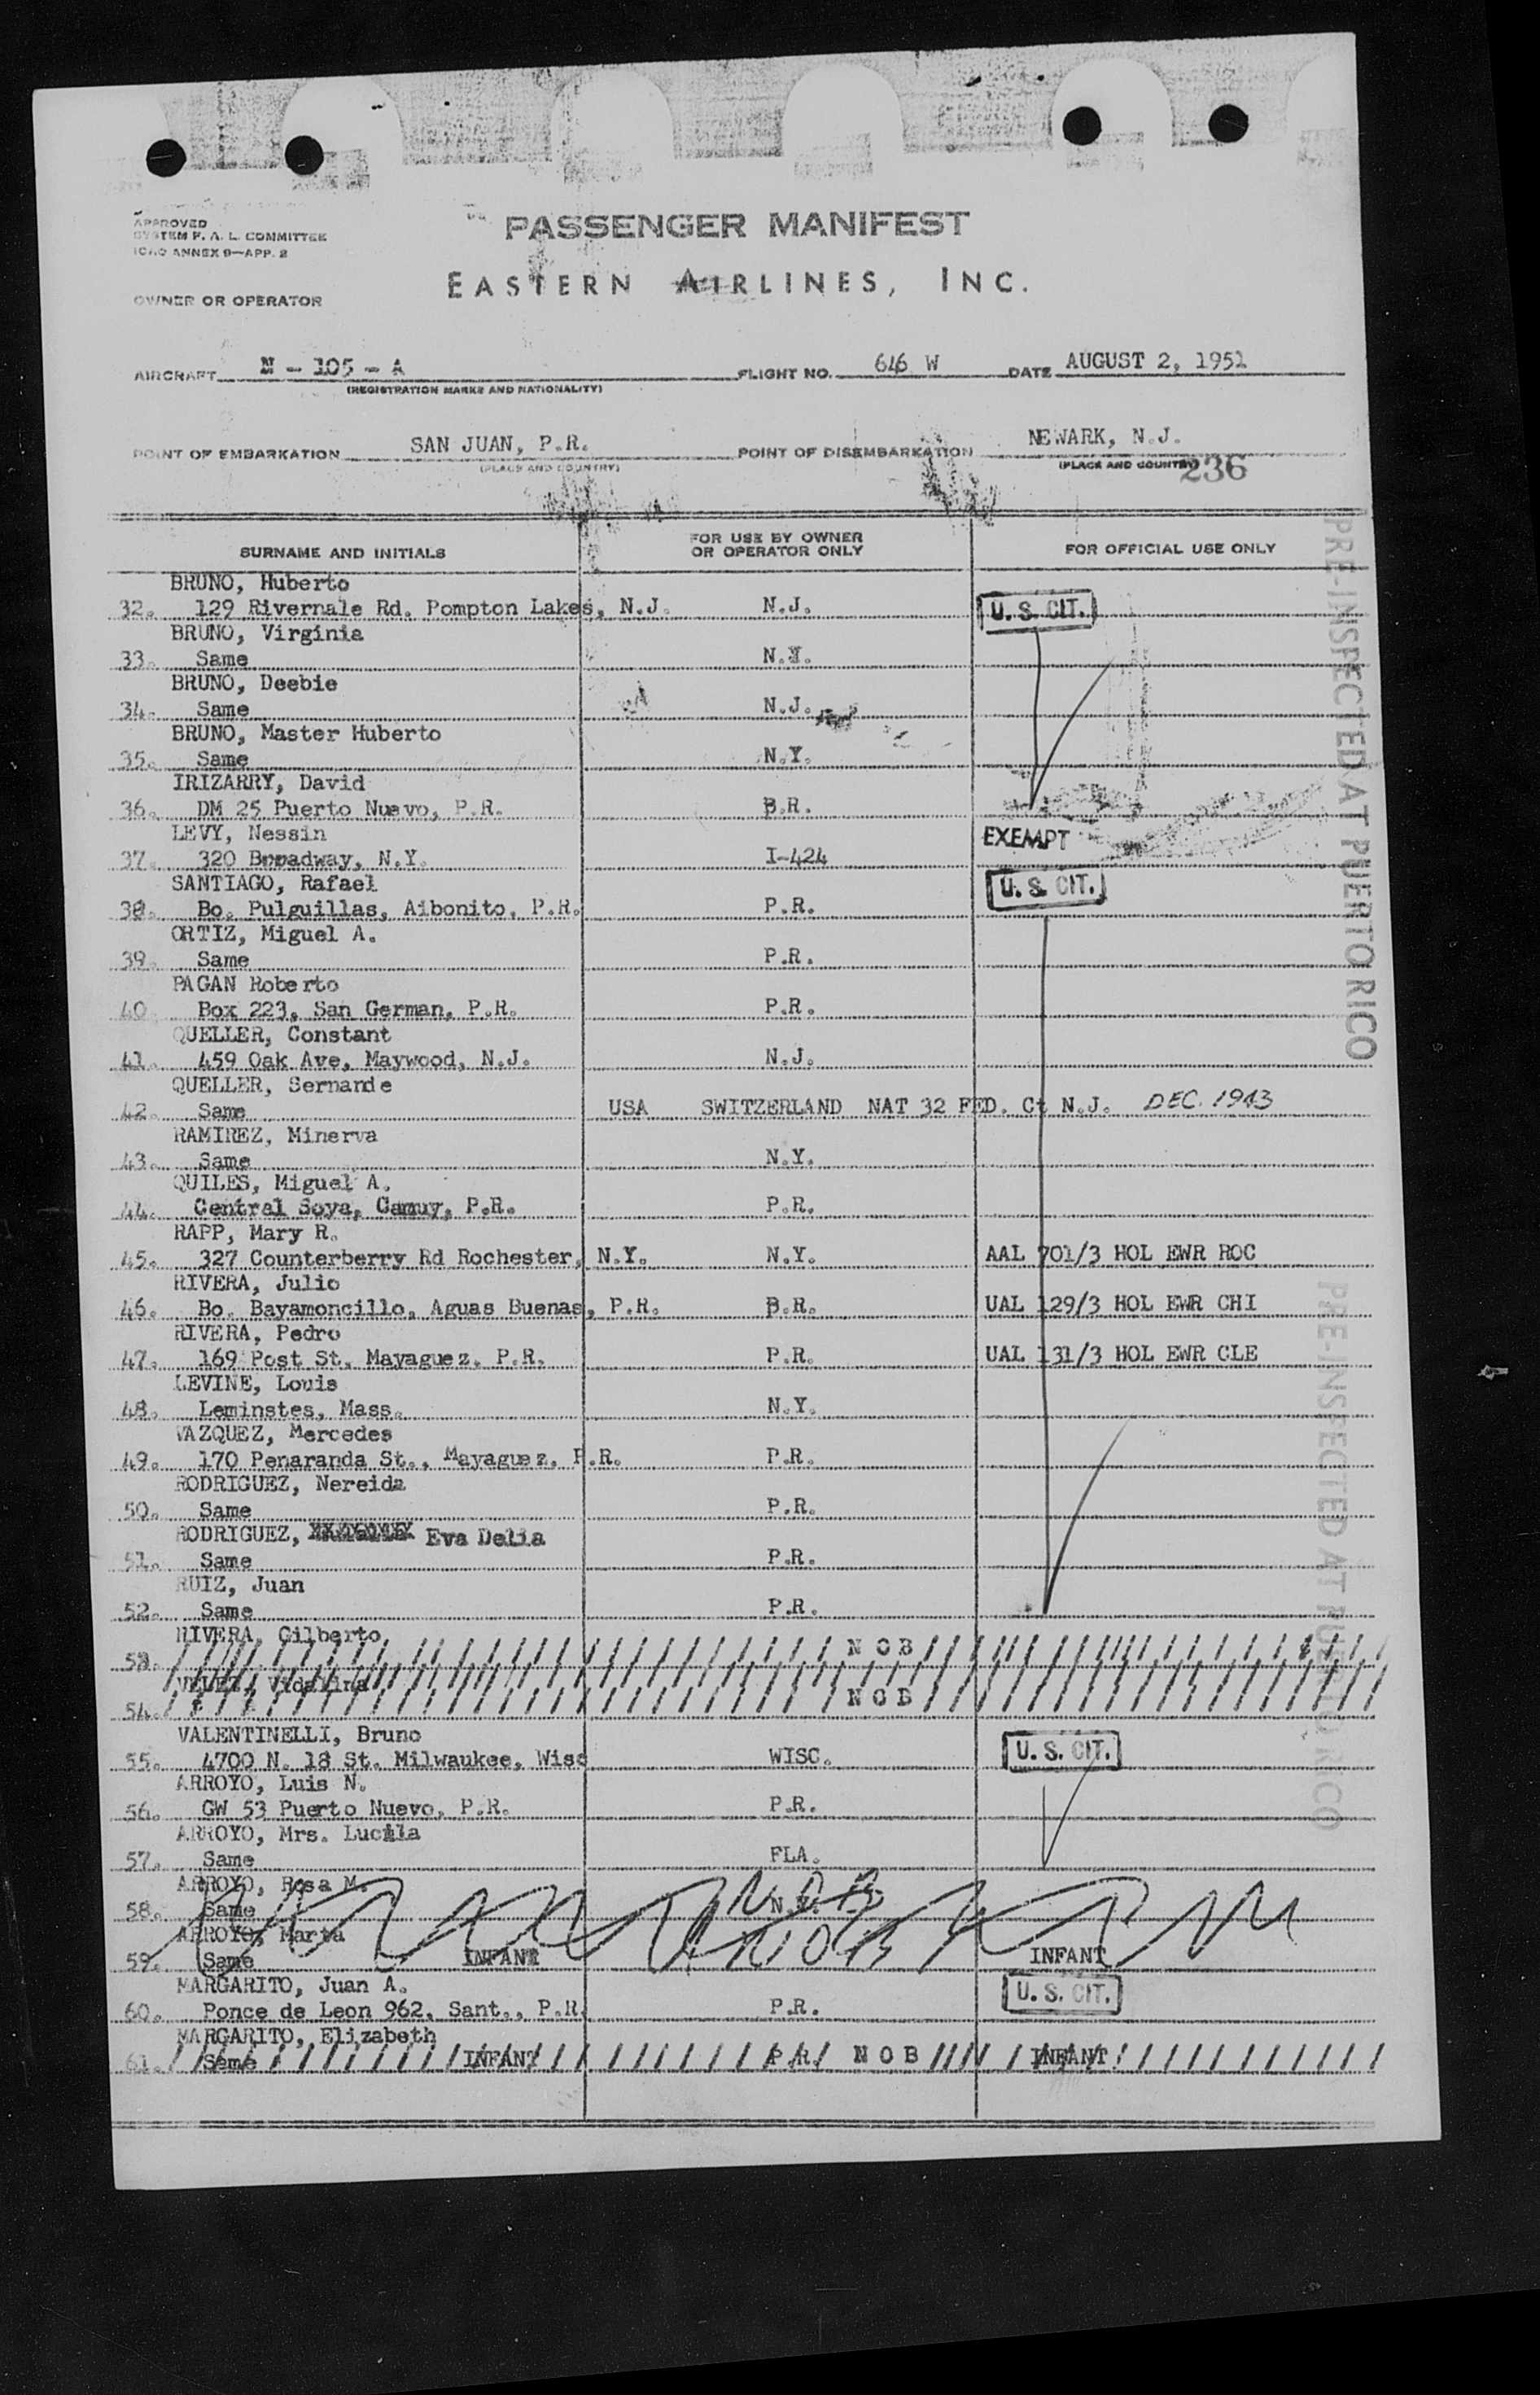 APPROVED
SYSTEM F. A. L. COMMITTEE
ICAO ANNEX 9—APP. 2
PASSENGER MANIFEST
EASTERN AIRLINES, INC.
OWNER OR OPERATOR
AIRCRAFT N - 105 - A FLIGHT NO. 646 W DATE AUGUST 2, 1951
(REGISTRATION MARKS AND NATIONALITY)
POINT OF EMBARKATION SAN JUAN, P.R. POINT OF DISEMBARKATION NEWARK, N.J.
(PLACE AND COUNTRY) (PLACE AND COUNTRY) 236
SURNAME AND INITIALS FOR USE BY OWNER OR OPERATOR ONLY FOR OFFICIAL USE ONLY
BRUNO, Huberto
32. 129 Rivernale Rd. Pompton Lakes, N.J. N.J. U. S. CIT.
BRUNO, Virginia
33. Same N.Y.
BRUNO, Deebie
34. Same N.J.
BRUNO, Master Huberto
35. Same N.Y.
IRIZARRY, David
36. DM 25 Puerto Nuevo, P.R. P.R.
LEVY, Nessin
37. 320 Broadway, N.Y. I-424 EXEMPT
SANTIAGO, Rafael
38. Bo. Pulguillas, Aibonito, P.R. P.R. U. S. CIT.
ORTIZ, Miguel A.
39. Same P.R.
PAGAN Roberto
40. Box 223, San German, P.R. P.R.
QUELLER, Constant
41. 459 Oak Ave, Maywood, N.J. N.J.
QUELLER, Sernande
42. Same USA SWITZERLAND NAT 32 FED. Ct N.J. DEC. 1943
RAMIREZ, Minerva
43. Same N.Y.
QUILES, Miguel A.
44. Central Soya, Camuy, P.R. P.R.
RAPP, Mary R.
45. 327 Counterberry Rd Rochester, N.Y. N.Y. AAL 701/3 HOL EWR ROC
RIVERA, Julio
46. Bo. Bayamoncillo, Aguas Buenas, P.R. P.R. UAL 129/3 HOL EWR CHI
RIVERA, Pedro
47. 169 Post St. Mayaguez, P.R. P.R. UAL 131/3 HOL EWR CLE
LEVINE, Louis
48. Leminstes, Mass. N.Y.
VAZQUEZ, Mercedes
49. 170 Penaranda St., Mayaguez, P.R. P.R.
RODRIGUEZ, Nereida
50. Same P.R.
RODRIGUEZ, Eva Delia
51. Same P.R.
RUIZ, Juan
52. Same P.R.
RIVERA, Gilberto
53. N O B
54. N O B
VALENTINELLI, Bruno
55. 4700 N. 18 St. Milwaukee, Wisc WISC. U. S. CIT.
ARROYO, Luis N.
56. GW 53 Puerto Nuevo, P.R. P.R.
ARROYO, Mrs. Lucila
57. Same FLA.
ARROYO, Rosa M. N O B
58. Same N.Y.
ARROYO, Maria N O B
59. Same INFANT INFANT
MARGARITO, Juan A.
60. Ponce de Leon 962, Sant., P.R. P.R. U. S. CIT.
MARGARITO, Elizabeth
61. Same INFANT P.R. N O B INFANT
PRE-INSPECTED AT PUERTO RICO
PRE-INSPECTED AT PUERTO RICO